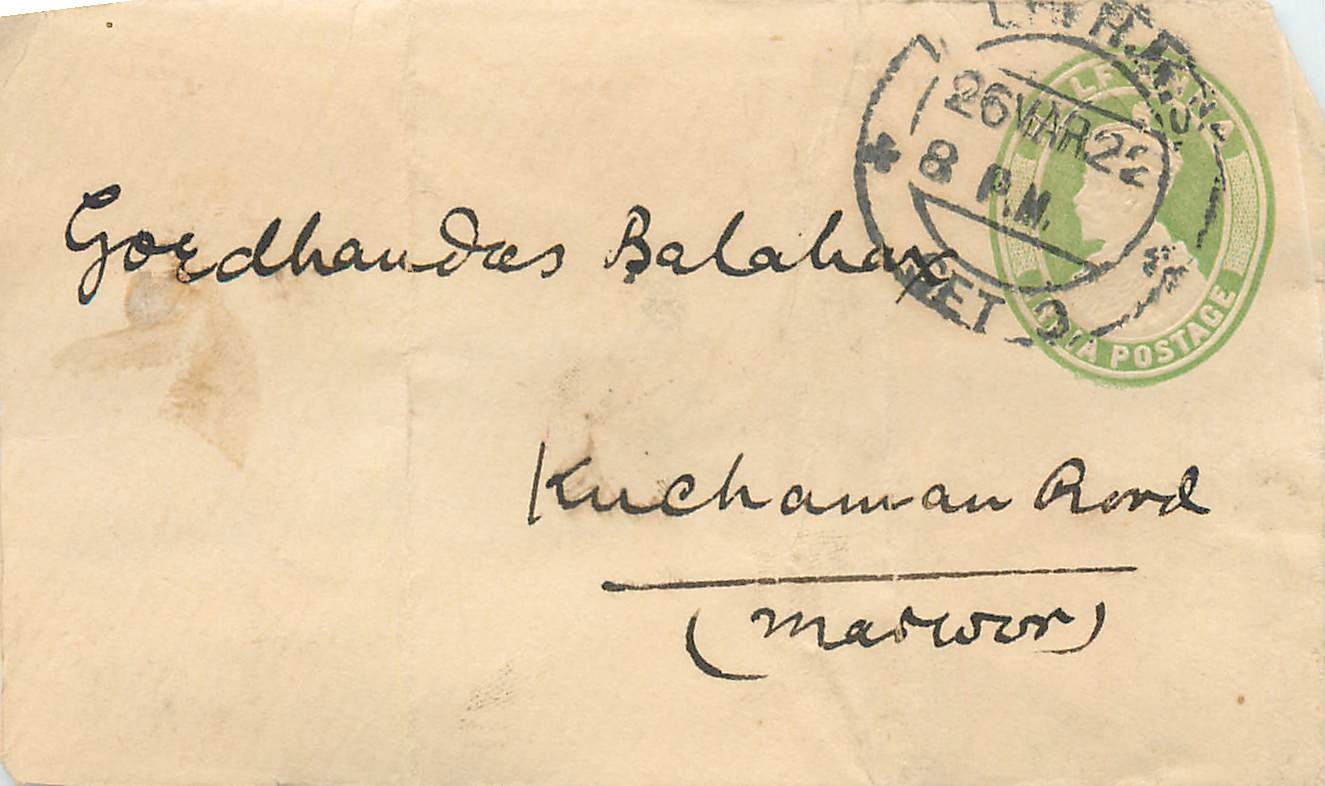 26 MAR. 22
8 P.M.
SET 2
LF ANNA
INDIA POSTAGE
Gordhandas Balabax
Kuchaman Road
(Marwar)